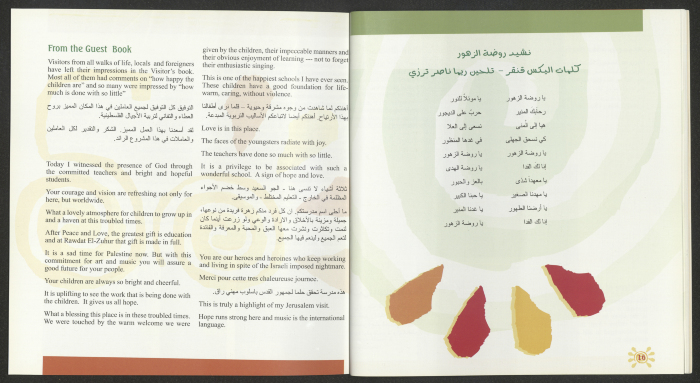 From the Guest Book
Visitors from all walks of life, locals and foreigners
have left their impressions in the Visitor's book.
Most all of them had comments on "how happy the
children are" and so many were impressed by "how
much is done with so little"
التوفيق كل التوفيق لجميع العاملين في هذا المكان المميز بروح
العطاء والتفاني لتربية الأجيال الفلسطينية.
لقد أسعدنا بهذا العمل المميز. الشكر والتقدير لكل العاملين
والعاملات في هذا المشروع الرائد.
Today I witnessed the presence of God through
the committed teachers and bright and hopeful
students.
Your courage and vision are refreshing not only for
here, but worldwide.
What a lovely atmosphere for children to grow up in
and a haven at this troubled times.
After Peace and Love, the greatest gift is education
and at Rawdat El-Zuhur that gift is made in full.
It is a sad time for Palestine now. But with this
commitment for art and music you will assure a
good future for your people.
Your children are always so bright and cheerful.
It is uplifting to see the work that is being done with
the children. It gives us all hope.
What a blessing this place is in these troubled times.
We were touched by the warm welcome we were
given by the children, their impeccable manners and
their obvious enjoyment of learning --- not to forget
their enthusiastic singing.
This is one of the happiest schools I have ever seen.
These children have a good foundation for life-
warm, caring, without violence.
أهنئكم لما شاهدت من وجوه مشرقة وحيوية - فكلما نرى أطفالنا
بهذا الارتياح أهنئكم أيضا لاتباعكم الأساليب التربوية المبدعة.
Love is in this place.
The faces of the youngsters radiate with joy.
The teachers have done so much with so little.
It is a privilege to be associated with such a
wonderful school. A sign of hope and love.
ثلاثة أشياء لا تنسى هنا - الجو السعيد وسط خضم الأجواء
المظلمة في الخارج - التعليم المختلط - والموسيقى.
ما أحلى اسم مدرستكم. ان كل فرد منكم زهرة فريدة من نوعها،
جميلة ومزينة بالأخلاق والإرادة والوعي ولو زرعت أينما كان
لنمت وتكاثرت ونشرت معها العبق والمحبة والمعرفة والفائدة
لتعم الجميع وليدم فيها الجميع.
You are our heroes and heroines who keep working
and living in spite of the Israeli imposed nightmare.
Merci pour cette tres chaleureuse journee.
هذه مدرسة تحقق حلما لجمهور القدس بأسلوب مهني راق.
This is truly a highlight of my Jerusalem visit.
Hope runs strong here and music is the international
language.
نشيد روضة الزهور
كلمات اليكس قنقر - تلحين ريما ناصر ترزي
يا روضة الزهور يا موئلا للنور
رحابك المنير حرب على الديجور
هيا إلى المنى نسعى إلى العلا
كي نسحق الجهل في غدها المنظور
يا روضة الزهور يا روضة الزهور
إنا لك الفدا يا روضة الهدى
يا معهدا شذى بالعز والحبور
يا مهدنا الصغير يا حبنا الكبير
يا أرضنا الطهور يا غدنا المنير
إنا لك الفدا يا روضة الزهور
16